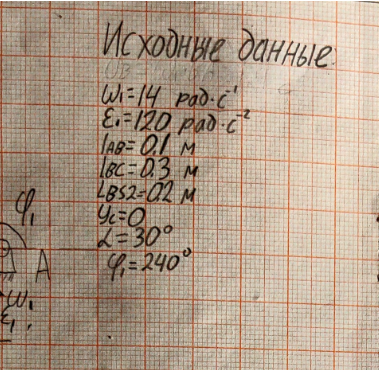 Исходные данные
ω₁=14 рад·с⁻¹
ε₁=120 рад·с⁻²
lAB=0.1 м
lBC=0.3 м
LBS2=0.2 м
yc=0
α=30°
φ₁=240°
φ₁
A
ω₁
ε₁